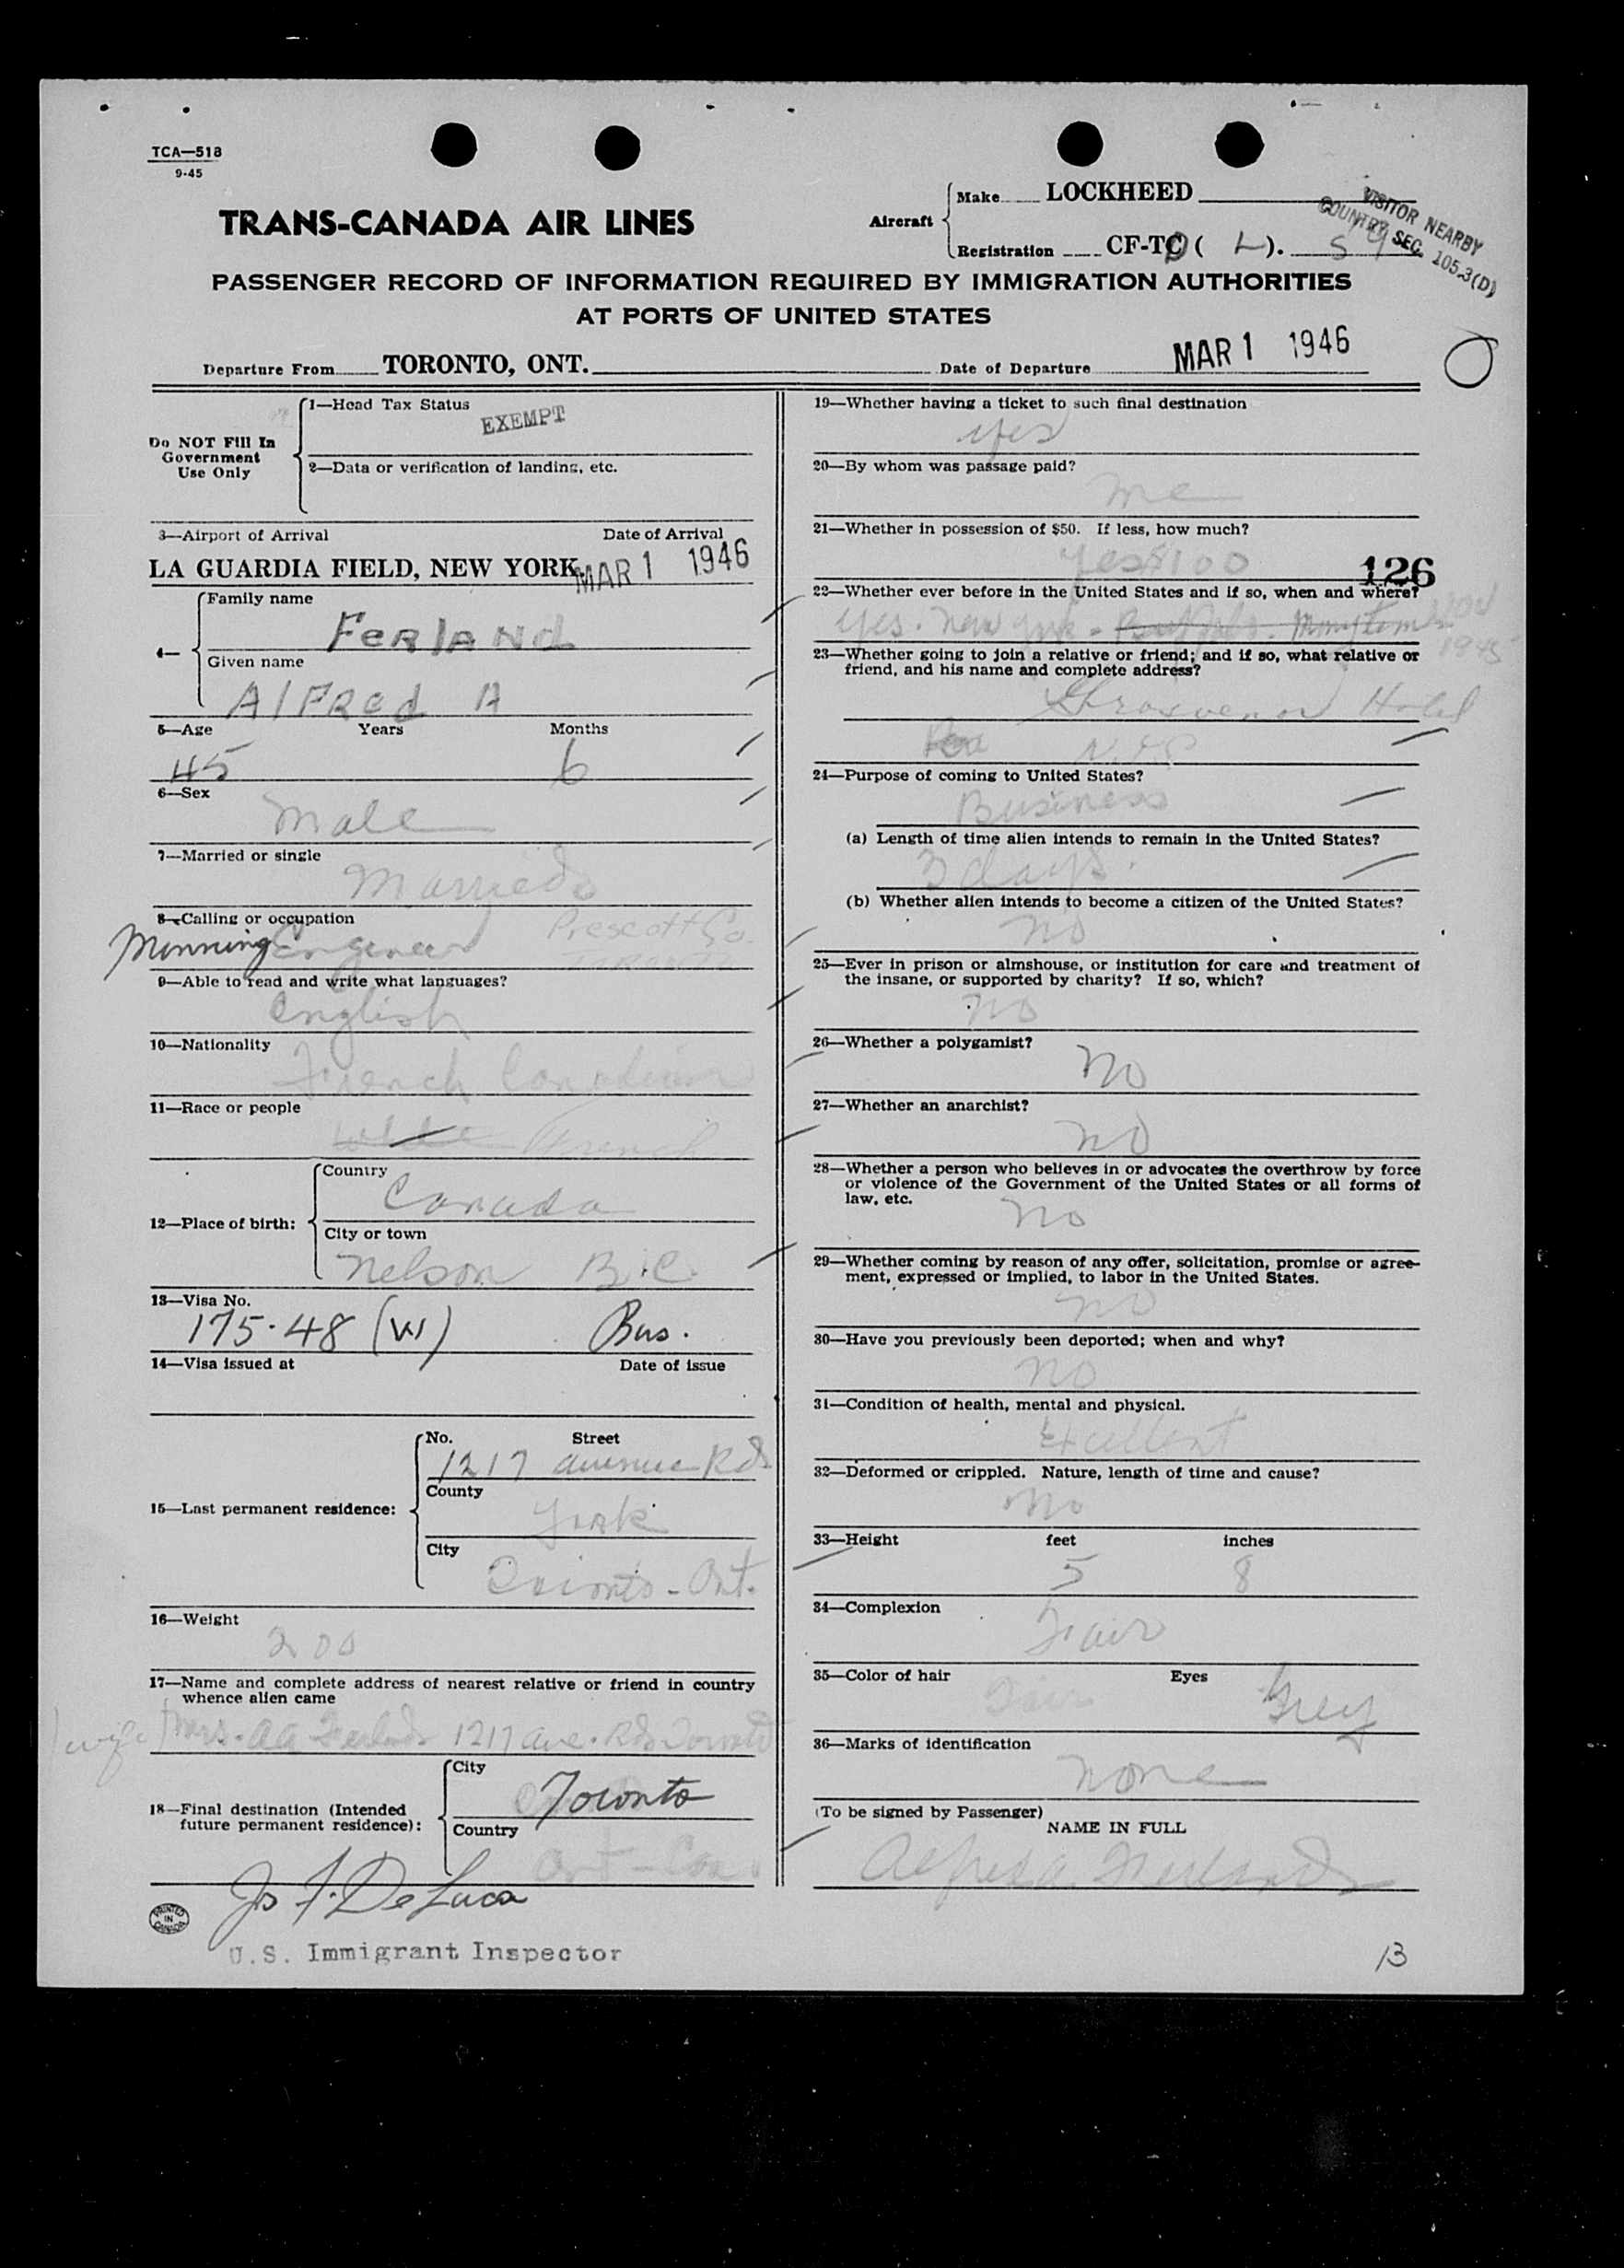 TCA—518
9-45
TRANS-CANADA AIR LINES
Aircraft
Make LOCKHEED
Registration CF-TC ( L ).
VISITOR NEARBY
COUNTRY SEC. 105.3(D)
PASSENGER RECORD OF INFORMATION REQUIRED BY IMMIGRATION AUTHORITIES
AT PORTS OF UNITED STATES
Departure From TORONTO, ONT. Date of Departure MAR 1 1946
Do NOT Fill In
Government
Use Only
1—Head Tax Status
EXEMPT
2—Data or verification of landing, etc.
3—Airport of Arrival Date of Arrival
LA GUARDIA FIELD, NEW YORK MAR 1 1946
4—
Family name
FERLANd
Given name
AlFRed A
5—Age Years Months
45 6
6—Sex
Male
7—Married or single
Married
8—Calling or occupation
Minning Engineer Prescott Co.
9—Able to read and write what languages?
English
10—Nationality
French Canadian
11—Race or people
White French
12—Place of birth:
Country
Canada
City or town
Nelson B.C.
13—Visa No.
175-48 (W) Bus.
14—Visa issued at Date of issue
15—Last permanent residence:
No. Street
1217 Avenue Rd
County
York
City
Toronto - Ont.
16—Weight
200
17—Name and complete address of nearest relative or friend in country
whence alien came
(wife) Mrs. AA Ferland 1217 Ave. Rd Toronto
18—Final destination (Intended
future permanent residence):
City
Toronto
Country
Ont - Can
Jos F. DeLuca
U.S. Immigrant Inspector
PRINTED IN CANADA
19—Whether having a ticket to such final destination
yes
20—By whom was passage paid?
me
21—Whether in possession of $50. If less, how much?
yes $100
126
22—Whether ever before in the United States and if so, when and where?
Yes. New York - Buffalo. Many times Nov
1945
23—Whether going to join a relative or friend; and if so, what relative or
friend, and his name and complete address?
Grosvenor Hotel
N.Y.C
24—Purpose of coming to United States?
Business
(a) Length of time alien intends to remain in the United States?
3 days.
(b) Whether alien intends to become a citizen of the United States?
no
25—Ever in prison or almshouse, or institution for care and treatment of
the insane, or supported by charity? If so, which?
no
26—Whether a polygamist?
no
27—Whether an anarchist?
no
28—Whether a person who believes in or advocates the overthrow by force
or violence of the Government of the United States or all forms of
law, etc.
no
29—Whether coming by reason of any offer, solicitation, promise or agree-
ment, expressed or implied, to labor in the United States.
no
30—Have you previously been deported; when and why?
no
31—Condition of health, mental and physical.
Excellent
32—Deformed or crippled. Nature, length of time and cause?
no
33—Height feet inches
5 8
34—Complexion
Fair
35—Color of hair Eyes
Fair Grey
36—Marks of identification
none
(To be signed by Passenger)
NAME IN FULL
Alfred A. Ferland
13